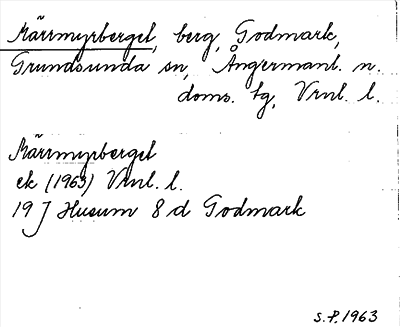 Kärrmyrberget, berg, Godmark,
Grundsunda sn, Ångermanl. n.
doms. tg, Vrnl. l.
Kärrmyrberget
ek (1963) Vrnl. l.
19 J Husum 8 d Godmark
S.P. 1963